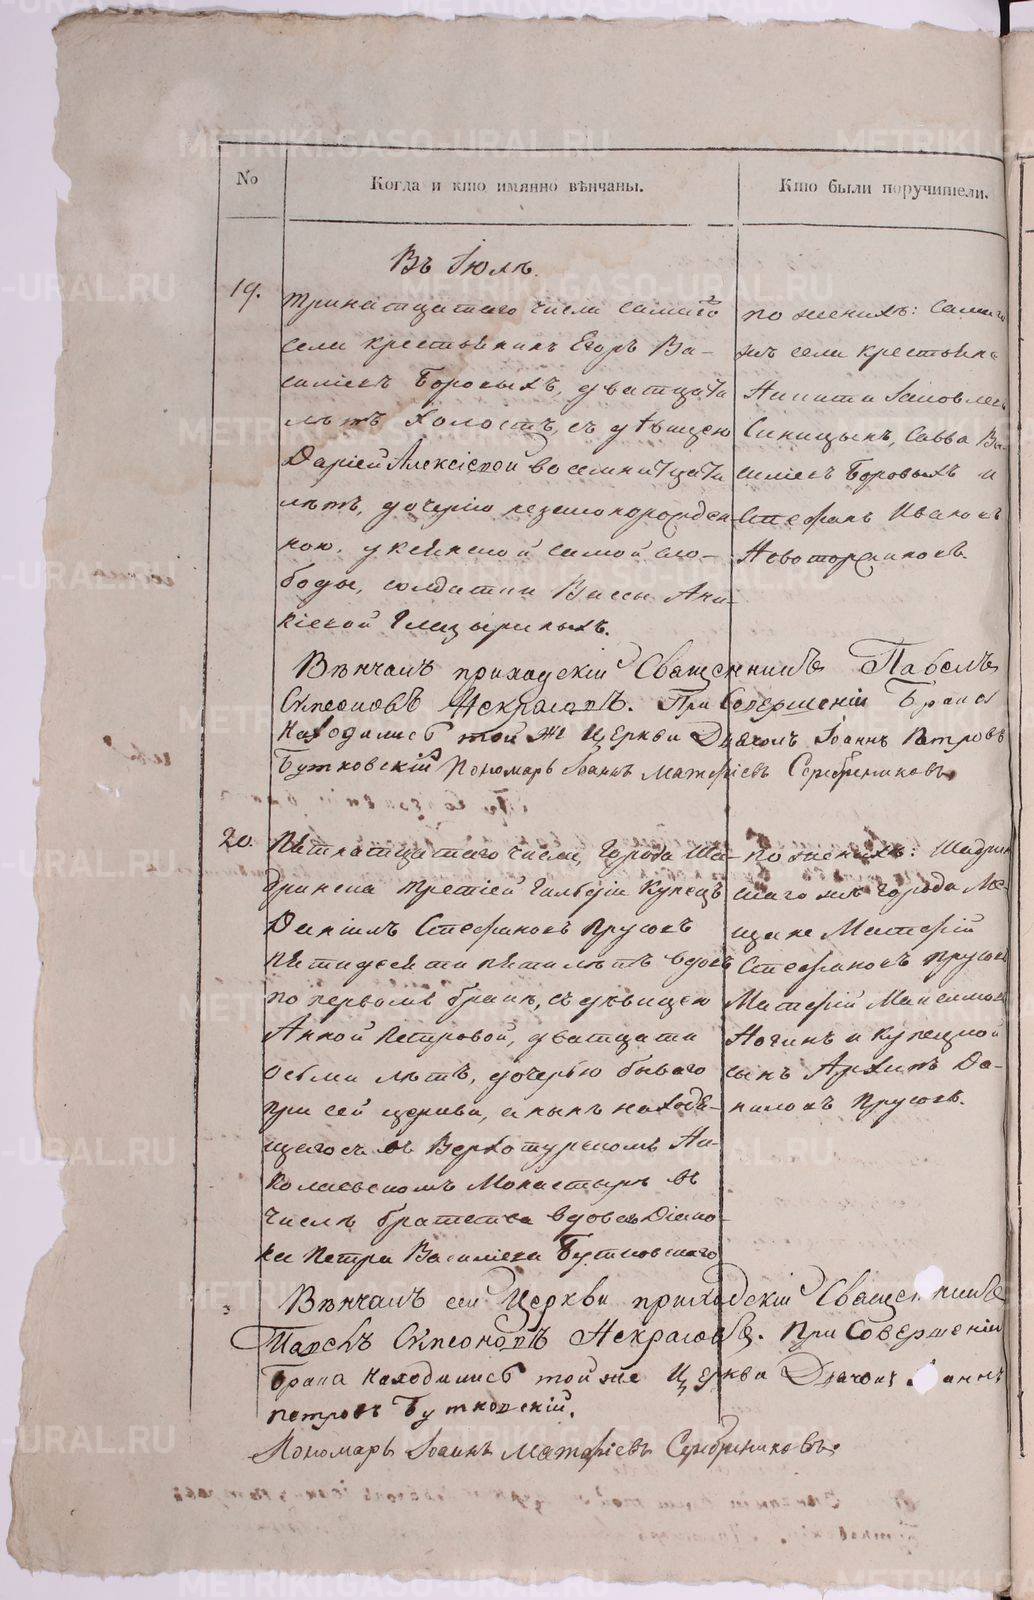 №
Когда и кто имянно вѣнчаны.
Кто были поручители.
Въ Іюлѣ.
19.
тринатцатаго числа самаго
села крестьянинъ Егоръ Ва-
силіевъ Боровыхъ, дватцати
лѣтъ холостъ, съ дѣвицею
Даріей Алексіевой восемнатцати
лѣтъ, дочерію незаконорожден-
ною,
боды, солдатки Вассы
по женихѣ: самаго
жъ села крестьяне
Никита
Синицынъ, Савва Ва-
силіевъ Боровыхъ и
Стефанъ Ивановъ
Новоторженовъ
Вѣнчалъ приходскій Священникъ Павелъ
Симеоновъ Некрасовъ. При Совершеніи Брака
находились той же Церкви Дьячокъ Іоаннъ Петровъ
Бутковскій Пономарь Іоаннъ Матфіевъ Серебрениковъ
20.
Пятнатцатаго числа, Города Ша-
дринска третіей Гильдіи Купецъ
Даніилъ Стефановъ Прусовъ
пятидесяти пяти лѣтъ вдовъ
по первомъ бракѣ, съ дѣвицею
Анной Петровой, дватцати
осьми лѣтъ, дочерью бывшаго
при сей церкви, а нынѣ находя-
щагося въ Верхотурскомъ Ни-
колаевскомъ Монастырѣ въ
числѣ братства вдоваго Діако-
на Петра Василіева Бутковскаго
по женихѣ: Шадрин-
скаго жъ города Мѣ-
щане Матфій
Стефановъ Прусовъ
Матфій Максимовъ
Ночинъ и купецкой
сынъ Архипъ Да-
ниловъ Прусовъ.
Вѣнчалъ сей Церкви приходскій Священникъ
Павелъ Симеоновъ Некрасовъ. При Совершеніи
Брака находились той же Церкви Дьячокъ Іоаннъ
Петровъ Бутковскій.
Пономарь Іоаннъ Матфіевъ Серебрениковъ
METRIKI.GASO-URAL.RU